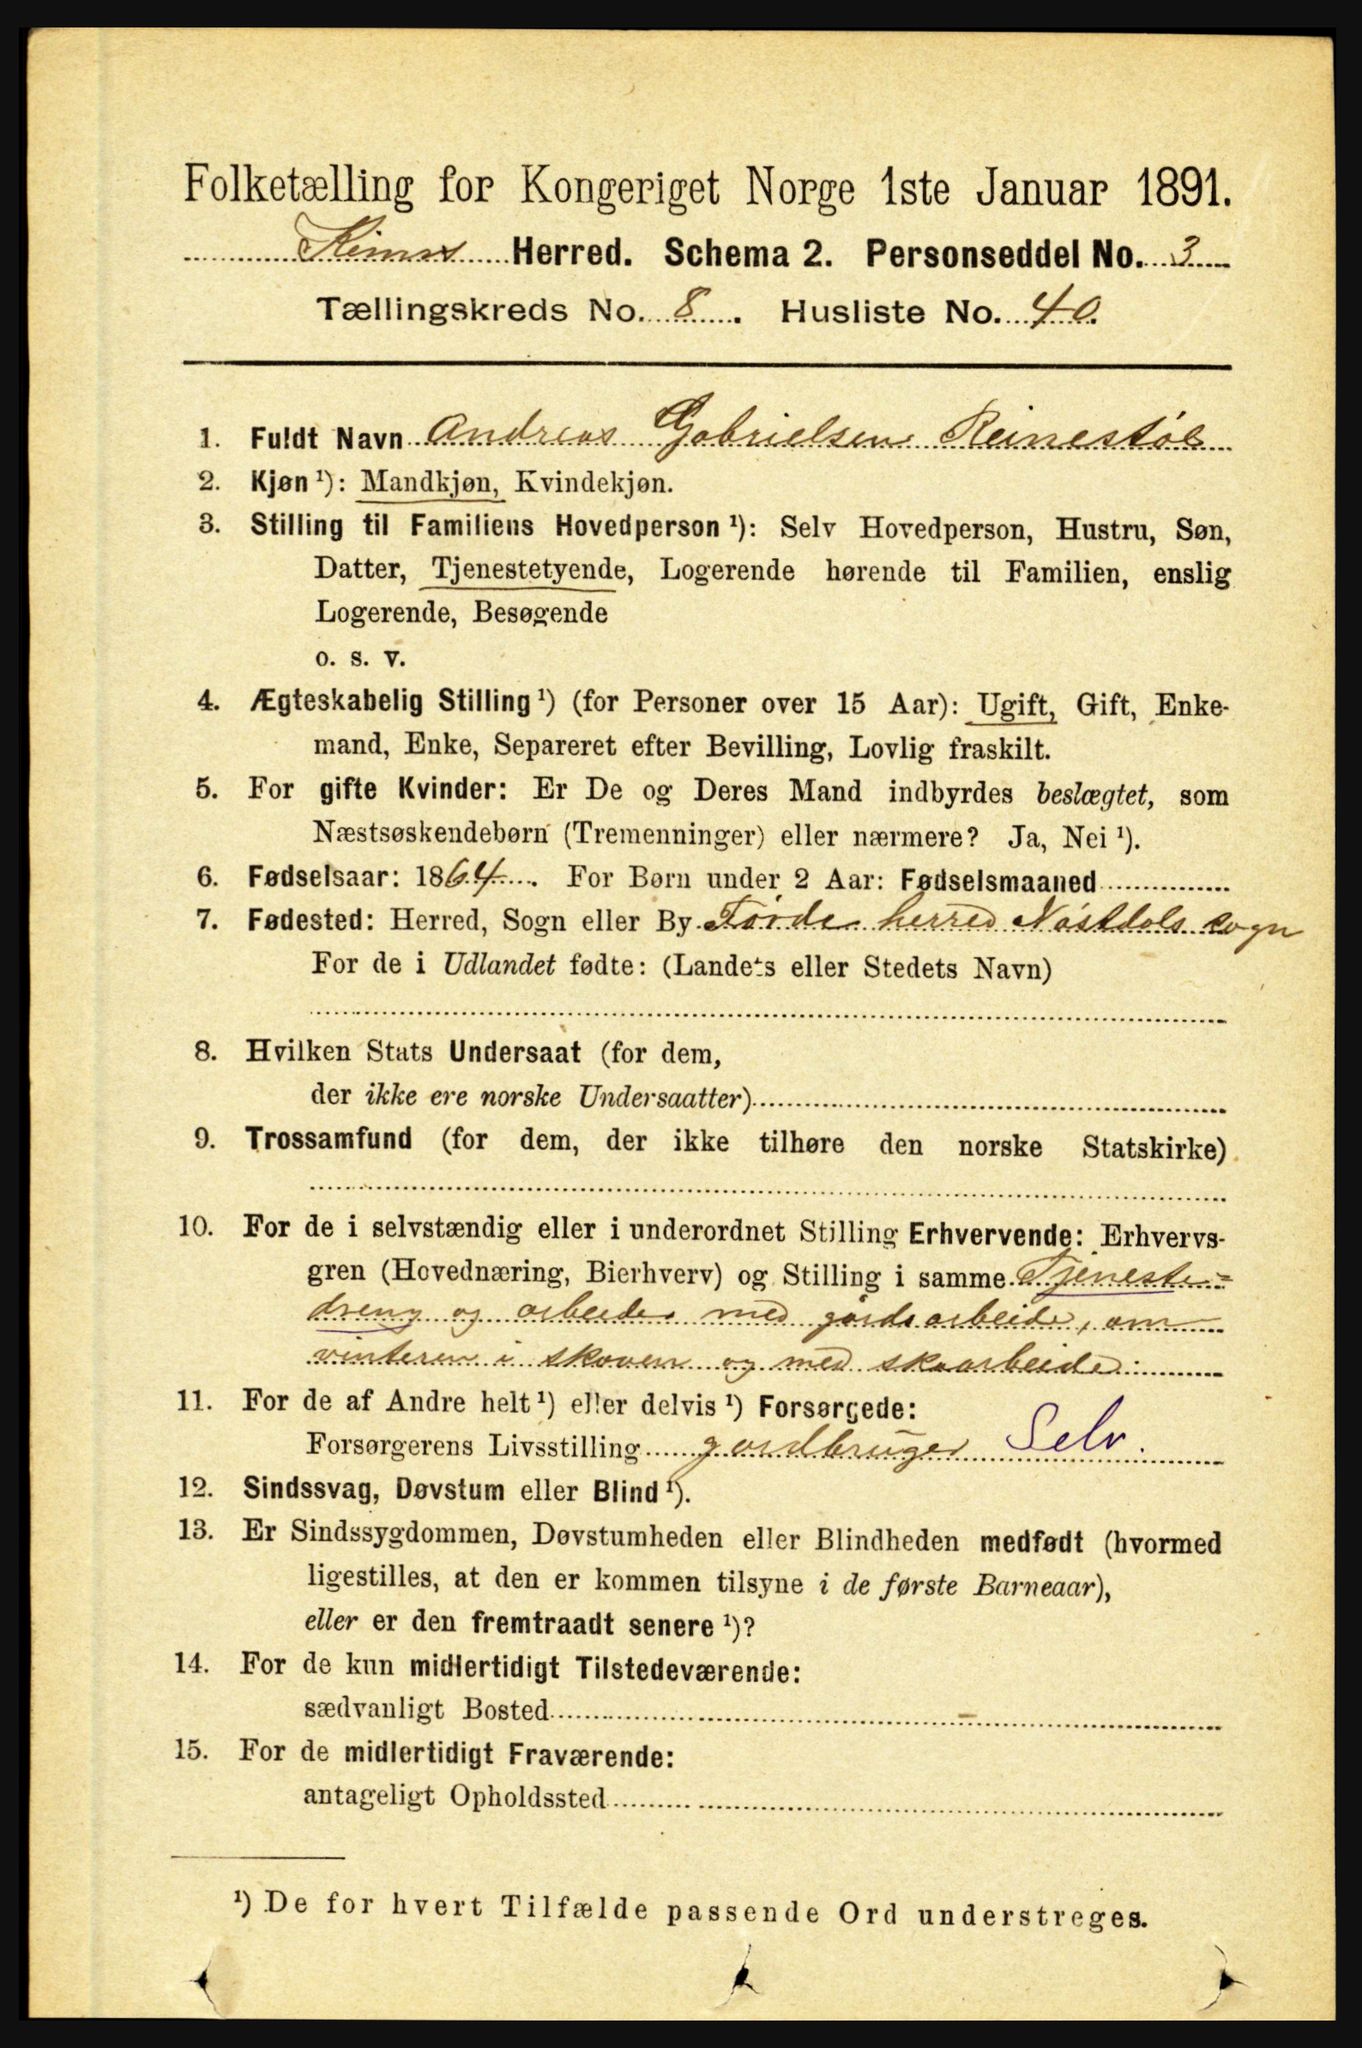 Folketælling for Kongeriget Norge 1ste Januar 1891.
Kinns Herred. Schema 2. Personseddel No. 3
Tællingskreds No. 8. Husliste No. 40.
1. Fuldt Navn Andreas Gabrielsen Reinestøl
2. Kjøn ¹): Mandkjøn, Kvindekjøn.
3. Stilling til Familiens Hovedperson ¹): Selv Hovedperson, Hustru, Søn,
Datter, Tjenestetyende, Logerende hørende til Familien, enslig
Logerende, Besøgende
o. s. v.
4. Ægteskabelig Stilling ¹) (for Personer over 15 Aar): Ugift, Gift, Enke-
mand, Enke, Separeret efter Bevilling, Lovlig fraskilt.
5. For gifte Kvinder: Er De og Deres Mand indbyrdes beslægtet, som
Næstsøskendebørn (Tremenninger) eller nærmere? Ja, Nei ¹).
6. Fødselsaar: 1864. For Børn under 2 Aar: Fødselsmaaned
7. Fødested: Herred, Sogn eller By Førde herred Nøstdals sogn
For de i Udlandet fødte: (Landets eller Stedets Navn)
8. Hvilken Stats Undersaat (for dem,
der ikke ere norske Undersaatter)
9. Trossamfund (for dem, der ikke tilhøre den norske Statskirke)
10. For de i selvstændig eller i underordnet Stilling Erhvervende: Erhvervs-
gren (Hovednæring, Bierhverv) og Stilling i samme Tjeneste-
dreng og arbeider med gårdsarbeide, om
vinteren i skoven og med skoarbeide.
11. For de af Andre helt ¹) eller delvis ¹) Forsørgede:
Forsørgerens Livsstilling gardbruger Selv.
12. Sindssvag, Døvstum eller Blind ¹).
13. Er Sindssygdommen, Døvstumheden eller Blindheden medfødt (hvormed
ligestilles, at den er kommen tilsyne i de første Barneaar),
eller er den fremtraadt senere ¹)?
14. For de kun midlertidigt Tilstedeværende:
sædvanligt Bosted
15. For de midlertidigt Fraværende:
antageligt Opholdssted
¹) De for hvert Tilfælde passende Ord understreges.